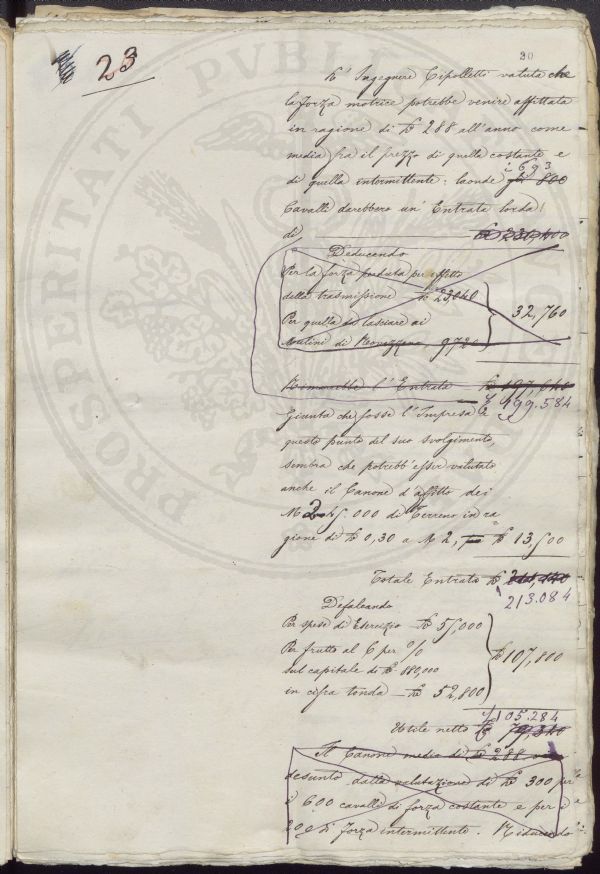 23
20
L' Ingegnere Cipolletti valuta che
la forza motrice potrebbe venire affittata
in ragione di £ 288 all'anno come
media fra il prezzo di quella costante e
i 693
di quella intermittente: laonde 800
Cavalli darebbero un' Entrata lorda
di £ 230,400
Deducendo
Per la forza perduta per effetto
della trasmissione £ 23,040
32,760
Per quella da lasciare ai
Mulini di 9,720
Rimarrebbe l' Entrata £ 197,640
£ 199.584
Giunta che fosse l' Impresa a
questo punto del suo svolgimento,
sembra che potrebb' esser valutato
anche il Canone d'affitto dei
M 2 45,000 di Terreno in ra
gione di £ 0,30 a M 2, £ 13,500
Totale Entrata £
213.084
Defalcando
Per spese di Esercizio £ 55,000
Per frutto al 6 per %
£ 107,800
sul capitale di £ 880,000
in cifra tonda £ 52,800
£ 105.284
Utile netto £
Il Canone medio di £ 288 è
desunto dalla valutazione di £ 300 per
i 600 cavalli di forza costante e per i
200 di forza intermittente. Riducendo
PROSPERITATI PUBLICAE